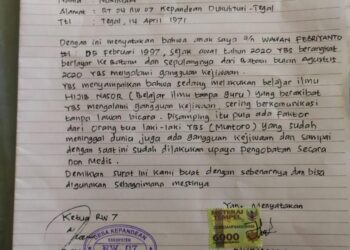 Alamat : RT 04 RW 07 Kepandean Dukuhturi - Tegal
Ttl : Tegal, 14 April 1971
Dengan ini menyatakan bahwa anak saya a/n WAWAN FEBRIYANTO
ttl : 05 Februari 1997, sejak awal tahun 2020 YBS berangkat
berlayar ke Batam dan sepulangnya dari Batam bulan Agustus
2020 YBS mengalami gangguan kejiwaan.
YBS menyampaikan bahwa sedang melakukan belajar ilmu
HIJIB NASOR (belajar ilmu tanpa guru) yang berakibat
YBS mengalami gangguan kejiwaan, sering berkomunikasi
tanpa lawan bicara. Disamping itu pula ada faktor
dari orang tua laki-laki YBS (Muntoro) yang sudah
meninggal dunia juga ada gangguan kejiwaan dan sampai
dengan saat ini sudah dilakukan upaya pengobatan secara
non Medis.
Demikian surat ini kami buat dengan sebenarnya dan bisa
digunakan sebagaimana mestinya
Yang Menyatakan
Ketua RW 7
METERAI
TEMPEL
6000
DESA KEPANDEAN
RW 07